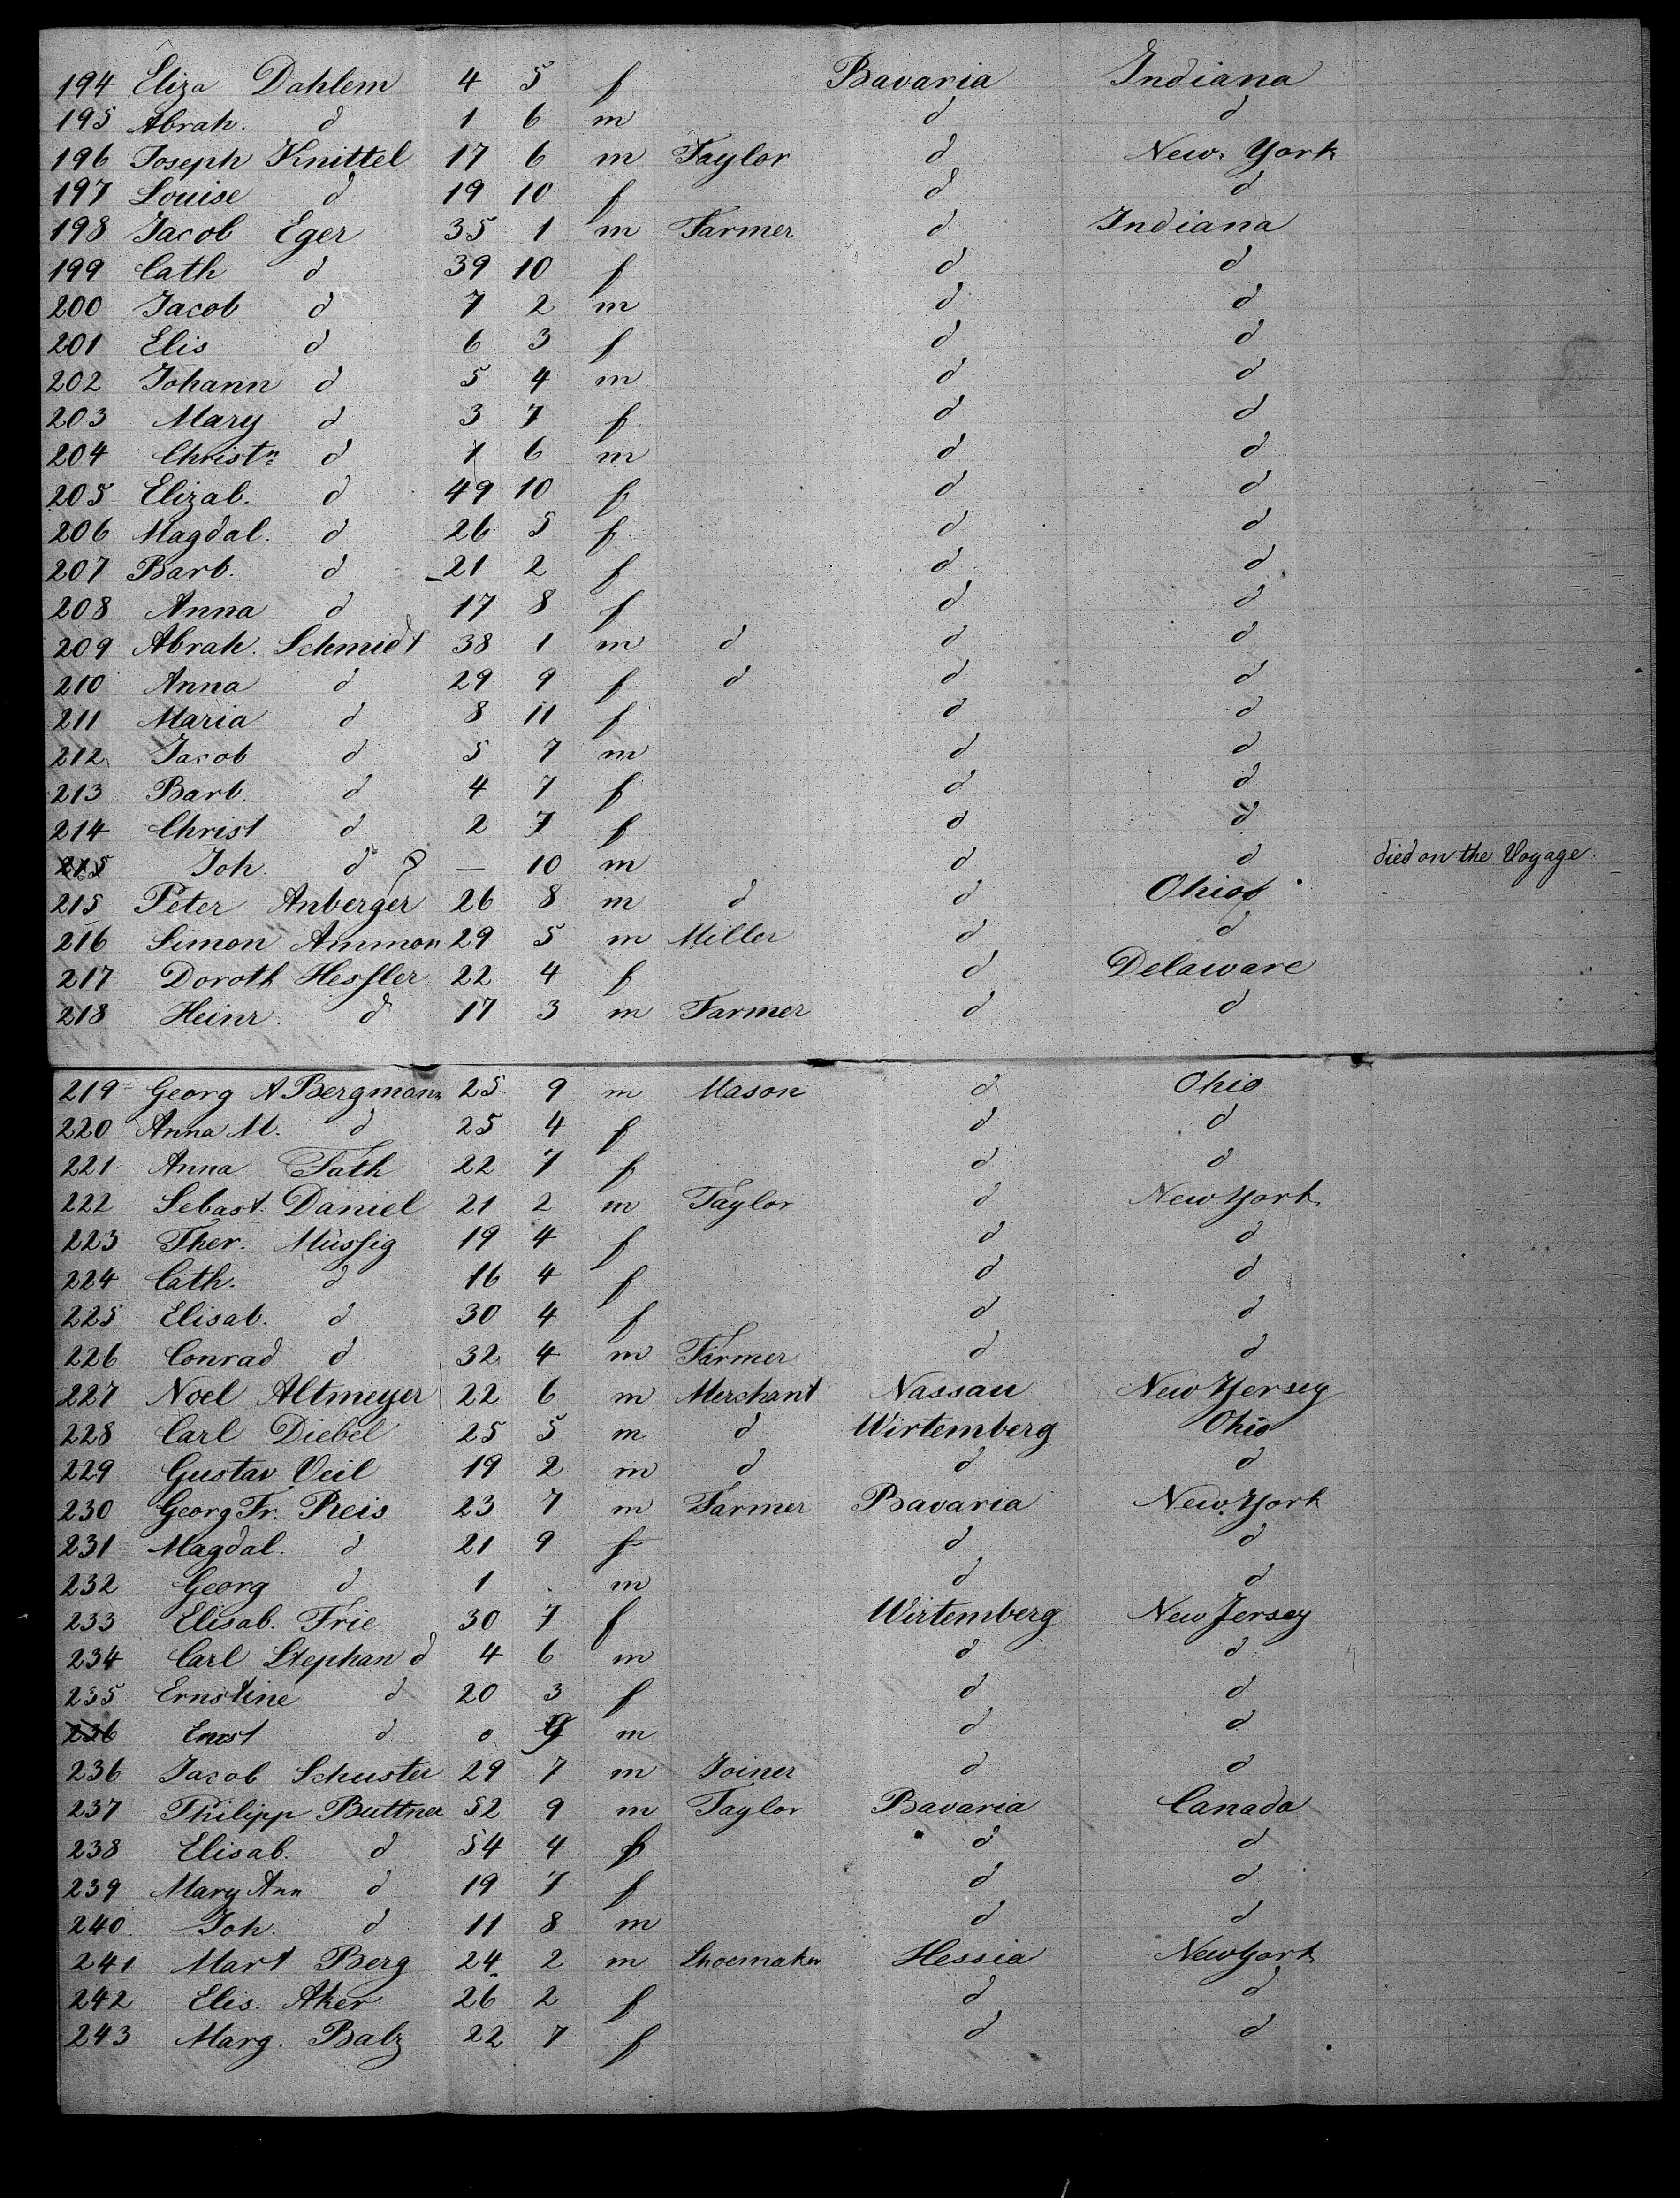 194 Eliza Dahlem 4 5 f Bavaria Indiana
195 Abrah. d 1 6 m d d
196 Joseph Knittel 17 6 m Taylor d New York
197 Louise d 19 10 f d d
198 Jacob Eger 35 1 m Farmer d Indiana
199 Cath d 39 10 f d d
200 Jacob d 7 2 m d d
201 Elis d 6 3 f d d
202 Johann d 5 4 m d d
203 Mary d 3 7 f d d
204 Christn d 1 6 m d d
205 Elizab. d 49 10 f d d
206 Magdal. d 26 5 f d d
207 Barb. d 21 2 f d d
208 Anna d 17 8 f d d
209 Abrah. Schmidt 38 1 m d d d
210 Anna d 29 9 f d d d
211 Maria d 8 11 f d d
212 Jacob d 5 7 m d d
213 Barb. d 4 7 f d d
214 Christ d 2 7 f d d
215 Joh. d — 10 m d d died on the Voyage.
215 Peter Anberger 26 8 m d d Ohio
216 Simon Ammon 29 5 m Miller d d
217 Doroth Hessler 22 4 f d Delaware
218 Heinr. d 17 3 m Farmer d d
219 Georg A Bergmann 25 9 m Mason d Ohio
220 Anna M. d 25 4 f d d
221 Anna Fath 22 7 f d d
222 Sebast. Daniel 21 2 m Taylor d New York
223 Ther. Müssig 19 4 f d d
224 Cath. d 16 4 f d d
225 Elisab. d 30 4 f d d
226 Conrad d 32 4 m Farmer d d
227 Noel Altmeyer 22 6 m Merchant Nassau New Yersey
228 Carl Diebel 25 5 m d Wirtemberg Ohio
229 Gustav Veil 19 2 m d d d
230 Georg Fr. Reis 23 7 m Farmer Bavaria New York
231 Magdal. d 21 9 f d d
232 Georg d 1 . m d d
233 Elisab. Frie 30 7 f Wirtemberg New Jersey
234 Carl Stephan d 4 6 m d d
235 Ernstine d 20 3 f d d
236 Ernst d 0 9 m d d
236 Jacob Schuster 29 7 m Joiner d d
237 Philipp Buttner 52 9 m Taylor Bavaria Canada
238 Elisab. d 54 4 f d d
239 Mary Ann d 19 7 f d d
240 Joh. d 11 8 m d d
241 Mart Berg 24 2 m Shoemaker Hessia New York
242 Elis. Aker 26 2 f d d
243 Marg. Balz 22 7 f d d